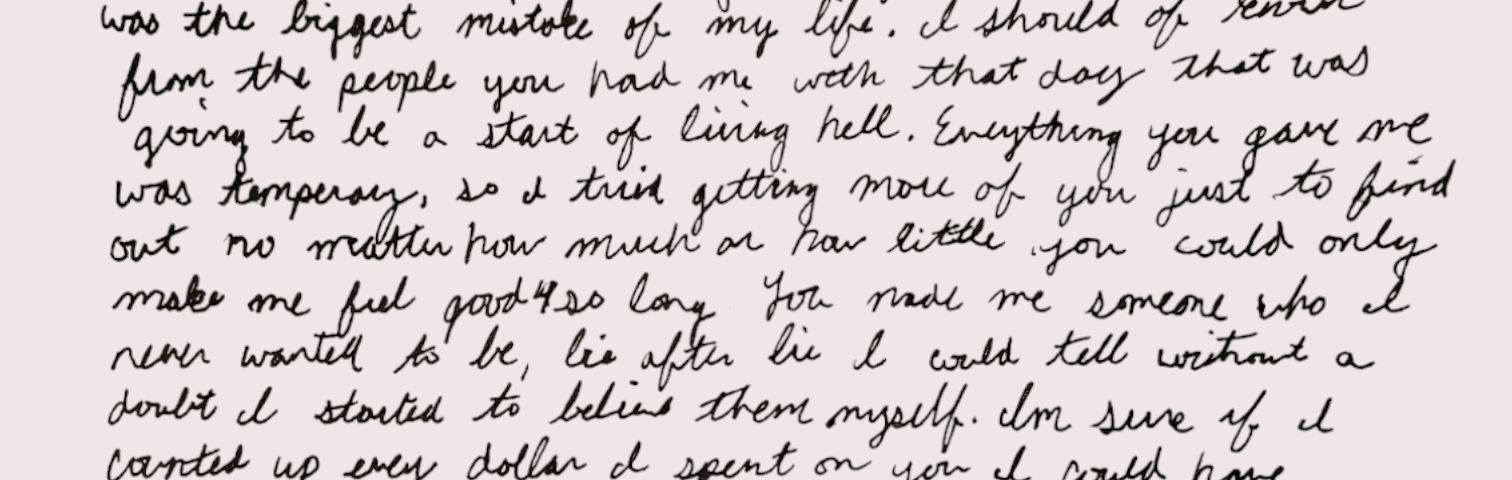 was the biggest mistake of my life. I should of
from the people you had me with that day that was
going to be a start of living hell. Everything you gave me
was temperary, so I tried getting more of you just to find
out no matter how much or how little you could only
make me feel good 4 so long You made me someone who I
never wanted to be, lie after lie I could tell without a
doubt I started to believe them myself. Im sure if I
counted up every dollar I spent on you I could have